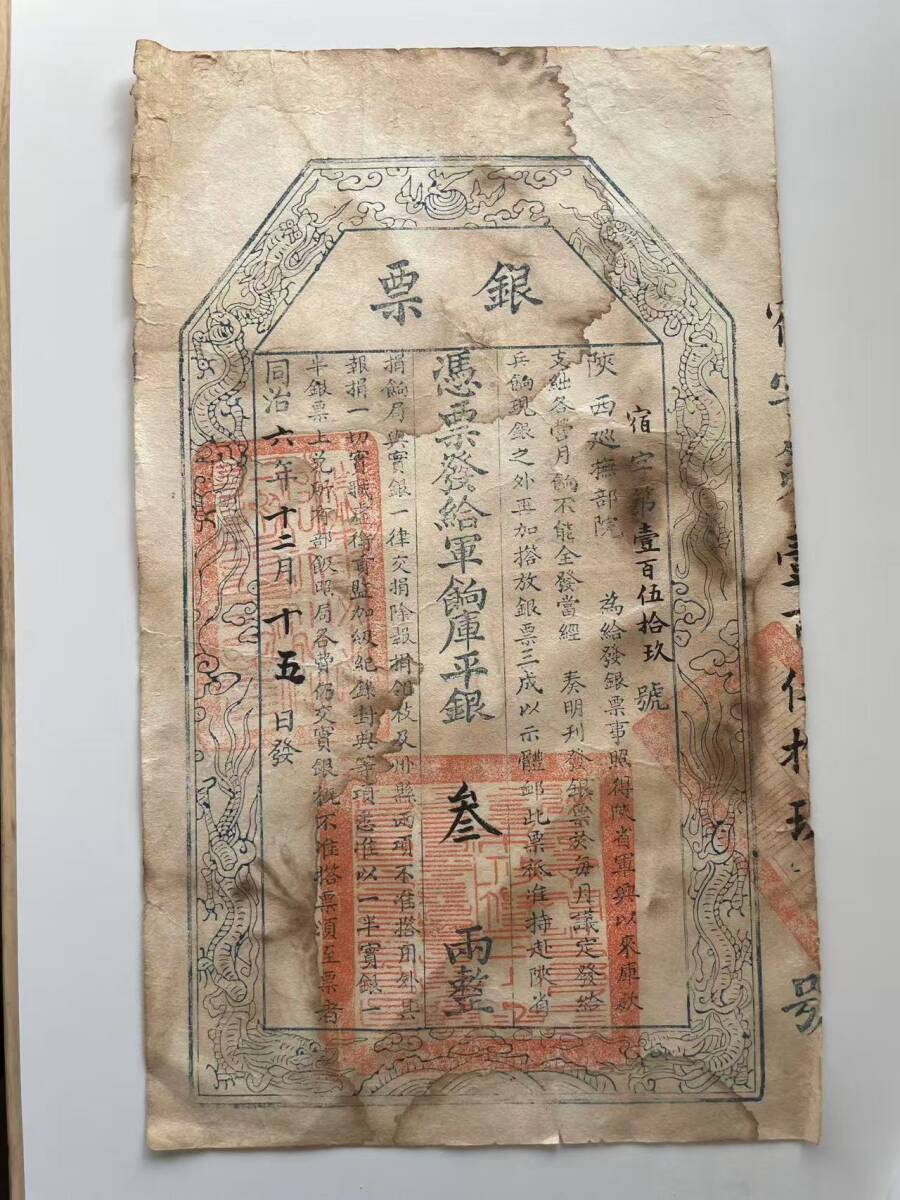 銀票
宿字第壹百伍拾玖號
陝西巡撫部院 為給發銀票事照得陝省軍興以來庫款
支絀各營月餉不能全發當經 奏明刊發銀票於每月議定發給
兵餉現銀之外再加搭放銀票三成以示體卹此票祗准持赴陝省
憑票發給軍餉庫平銀 叁 兩整
捐餉局與實銀一律交捐除報捐翎枝及州縣兩項不准搭用外其
報捐一切實職虛銜貢監加級紀錄封典等項悉准以一半實銀一
半銀票上兌所有部飯照局各費仍交實銀概不准搭票須至票者
同治六年十二月十五日發
宿字 壹百伍拾玖號